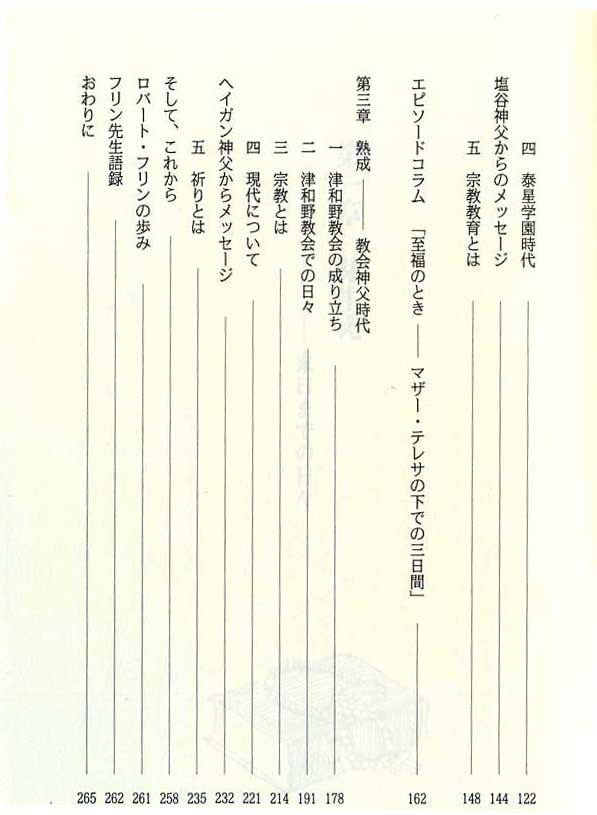 四　泰星学園時代　122
塩谷神父からのメッセージ　144
五　宗教教育とは　148
エピソードコラム　「至福のとき――マザー・テレサの下での三日間」　162
第三章　熟成――教会神父時代
一　津和野教会の成り立ち　178
二　津和野教会での日々　191
三　宗教とは　214
四　現代について　221
ヘイガン神父からメッセージ　232
五　祈りとは　235
そして、これから　258
ロバート・フリンの歩み　261
フリン先生語録　262
おわりに　265